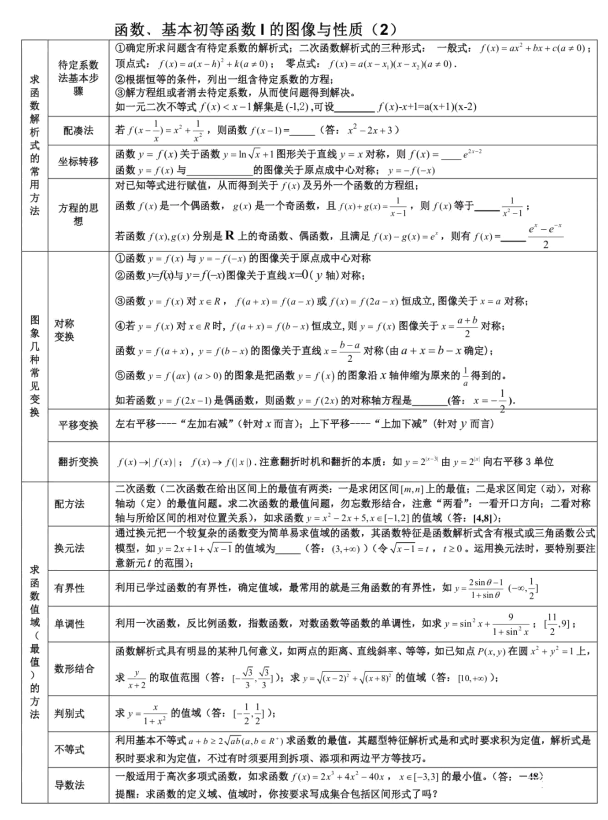 函数、基本初等函数Ⅰ的图像与性质（2）
求函数解析式的常用方法
待定系数法基本步骤
①确定所求问题含有待定系数的解析式；二次函数解析式的三种形式： 一般式：f(x)=ax²+bx+c(a≠0)；
顶点式：f(x)=a(x−h)²+k(a≠0)； 零点式：f(x)=a(x−x₁)(x−x₂)(a≠0).
②根据恒等的条件，列出一组含待定系数的方程；
③解方程组或者消去待定系数，从而使问题得到解决。
如一元二次不等式 f(x)<x−1解集是(-1,2) ,可设_______ f(x)-x+1=a(x+1)(x-2)
配凑法
若 f(x−1/x)=x²+1/x²，则函数 f(x−1)=_____（答：x²−2x+3）
坐标转移
函数 y=f(x) 关于函数 y=ln√x+1 图形关于直线 y=x 对称，则 f(x)=____e^(2x−2)
函数 y=f(x) 与____________的图像关于原点成中心对称；y=−f(−x)
方程的思想
对已知等式进行赋值，从而得到关于 f(x) 及另外一个函数的方程组；
函数 f(x) 是一个偶函数，g(x) 是一个奇函数，且 f(x)+g(x)=1/(x−1)，则 f(x) 等于_____1/(x²−1)；
若函数 f(x),g(x) 分别是 R 上的奇函数、偶函数，且满足 f(x)−g(x)=eˣ，则有 f(x)=_____(eˣ−e⁻ˣ)/2
图象几种常见变换
对称变换
①函数 y=f(x) 与 y=−f(−x) 的图像关于原点成中心对称
②函数y=f(x)与 y=f(−x)图像关于直线x=0( y 轴)对称；
③函数 y=f(x) 对 x∈R，f(a+x)=f(a−x) 或 f(x)=f(2a−x) 恒成立,图像关于 x=a 对称；
④若 y=f(x) 对 x∈R 时, f(a+x)=f(b−x) 恒成立,则 y=f(x) 图像关于 x=(a+b)/2 对称；
函数 y=f(a+x)，y=f(b−x) 的图像关于直线 x=(b−a)/2 对称(由 a+x=b−x 确定)；
⑤函数 y=f(ax) (a>0) 的图象是把函数 y=f(x) 的图象沿 x 轴伸缩为原来的 1/a 得到的。
如若函数 y=f(2x−1) 是偶函数，则函数 y=f(2x) 的对称轴方程是_______(答：x=−1/2).
平移变换
左右平移----“左加右减”（针对 x 而言）；上下平移----“上加下减”(针对 y 而言)
翻折变换
f(x)→|f(x)|；f(x)→f(|x|).注意翻折时机和翻折的本质：如 y=2^|x−3| 由 y=2^|x| 向右平移 3 单位
求函数值域（最值）的方法
配方法
二次函数（二次函数在给出区间上的最值有两类：一是求闭区间[m,n]上的最值；二是求区间定（动），对称
轴动（定）的最值问题。求二次函数的最值问题，勿忘数形结合，注意“两看”：一看开口方向；二看对称
轴与所给区间的相对位置关系），如求函数 y=x²−2x+5,x∈[−1,2] 的值域（答：[4,8]）；
换元法
通过换元把一个较复杂的函数变为简单易求值域的函数，其函数特征是函数解析式含有根式或三角函数公式
模型，如 y=2x+1+√(x−1) 的值域为_____（答：(3,+∞)）（令 √(x−1)=t，t≥0。运用换元法时，要特别要注
意新元 t 的范围）；
有界性
利用已学过函数的有界性，确定值域，最常用的就是三角函数的有界性，如 y=(2sinθ−1)/(1+sinθ) (−∞,1/2]
单调性
利用一次函数，反比例函数，指数函数，对数函数等函数的单调性，如求 y=sin²x+9/(1+sin²x)；[11/2,9]；
数形结合
函数解析式具有明显的某种几何意义，如两点的距离、直线斜率、等等，如已知点 P(x,y) 在圆 x²+y²=1 上，
求 y/(x+2) 的取值范围（答：[−√3/3,√3/3]）；求 y=√(x−2)²+√(x+8)² 的值域（答：[10,+∞)）；
判别式
求 y=x/(1+x²) 的值域（答：[−1/2,1/2]）；
不等式
利用基本不等式 a+b≥2√ab(a,b∈R⁺) 求函数的最值，其题型特征解析式是和式时要求积为定值，解析式是
积时要求和为定值，不过有时须要用到拆项、添项和两边平方等技巧。
导数法
一般适用于高次多项式函数，如求函数 f(x)=2x³+4x²−40x，x∈[−3,3] 的最小值。（答：－48）
提醒：求函数的定义域、值域时，你按要求写成集合包括区间形式了吗？